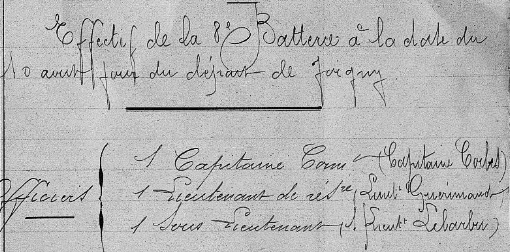 Effectif de la 8e Batterie à la date du
10 août jour du départ de Jorguy
1 Capitaine Comt (Capitaine Corbes)
Officiers 1 Lieutenant de résve (Lieut
1 Sous Lieutenant (S. Lieut Lebarbu)